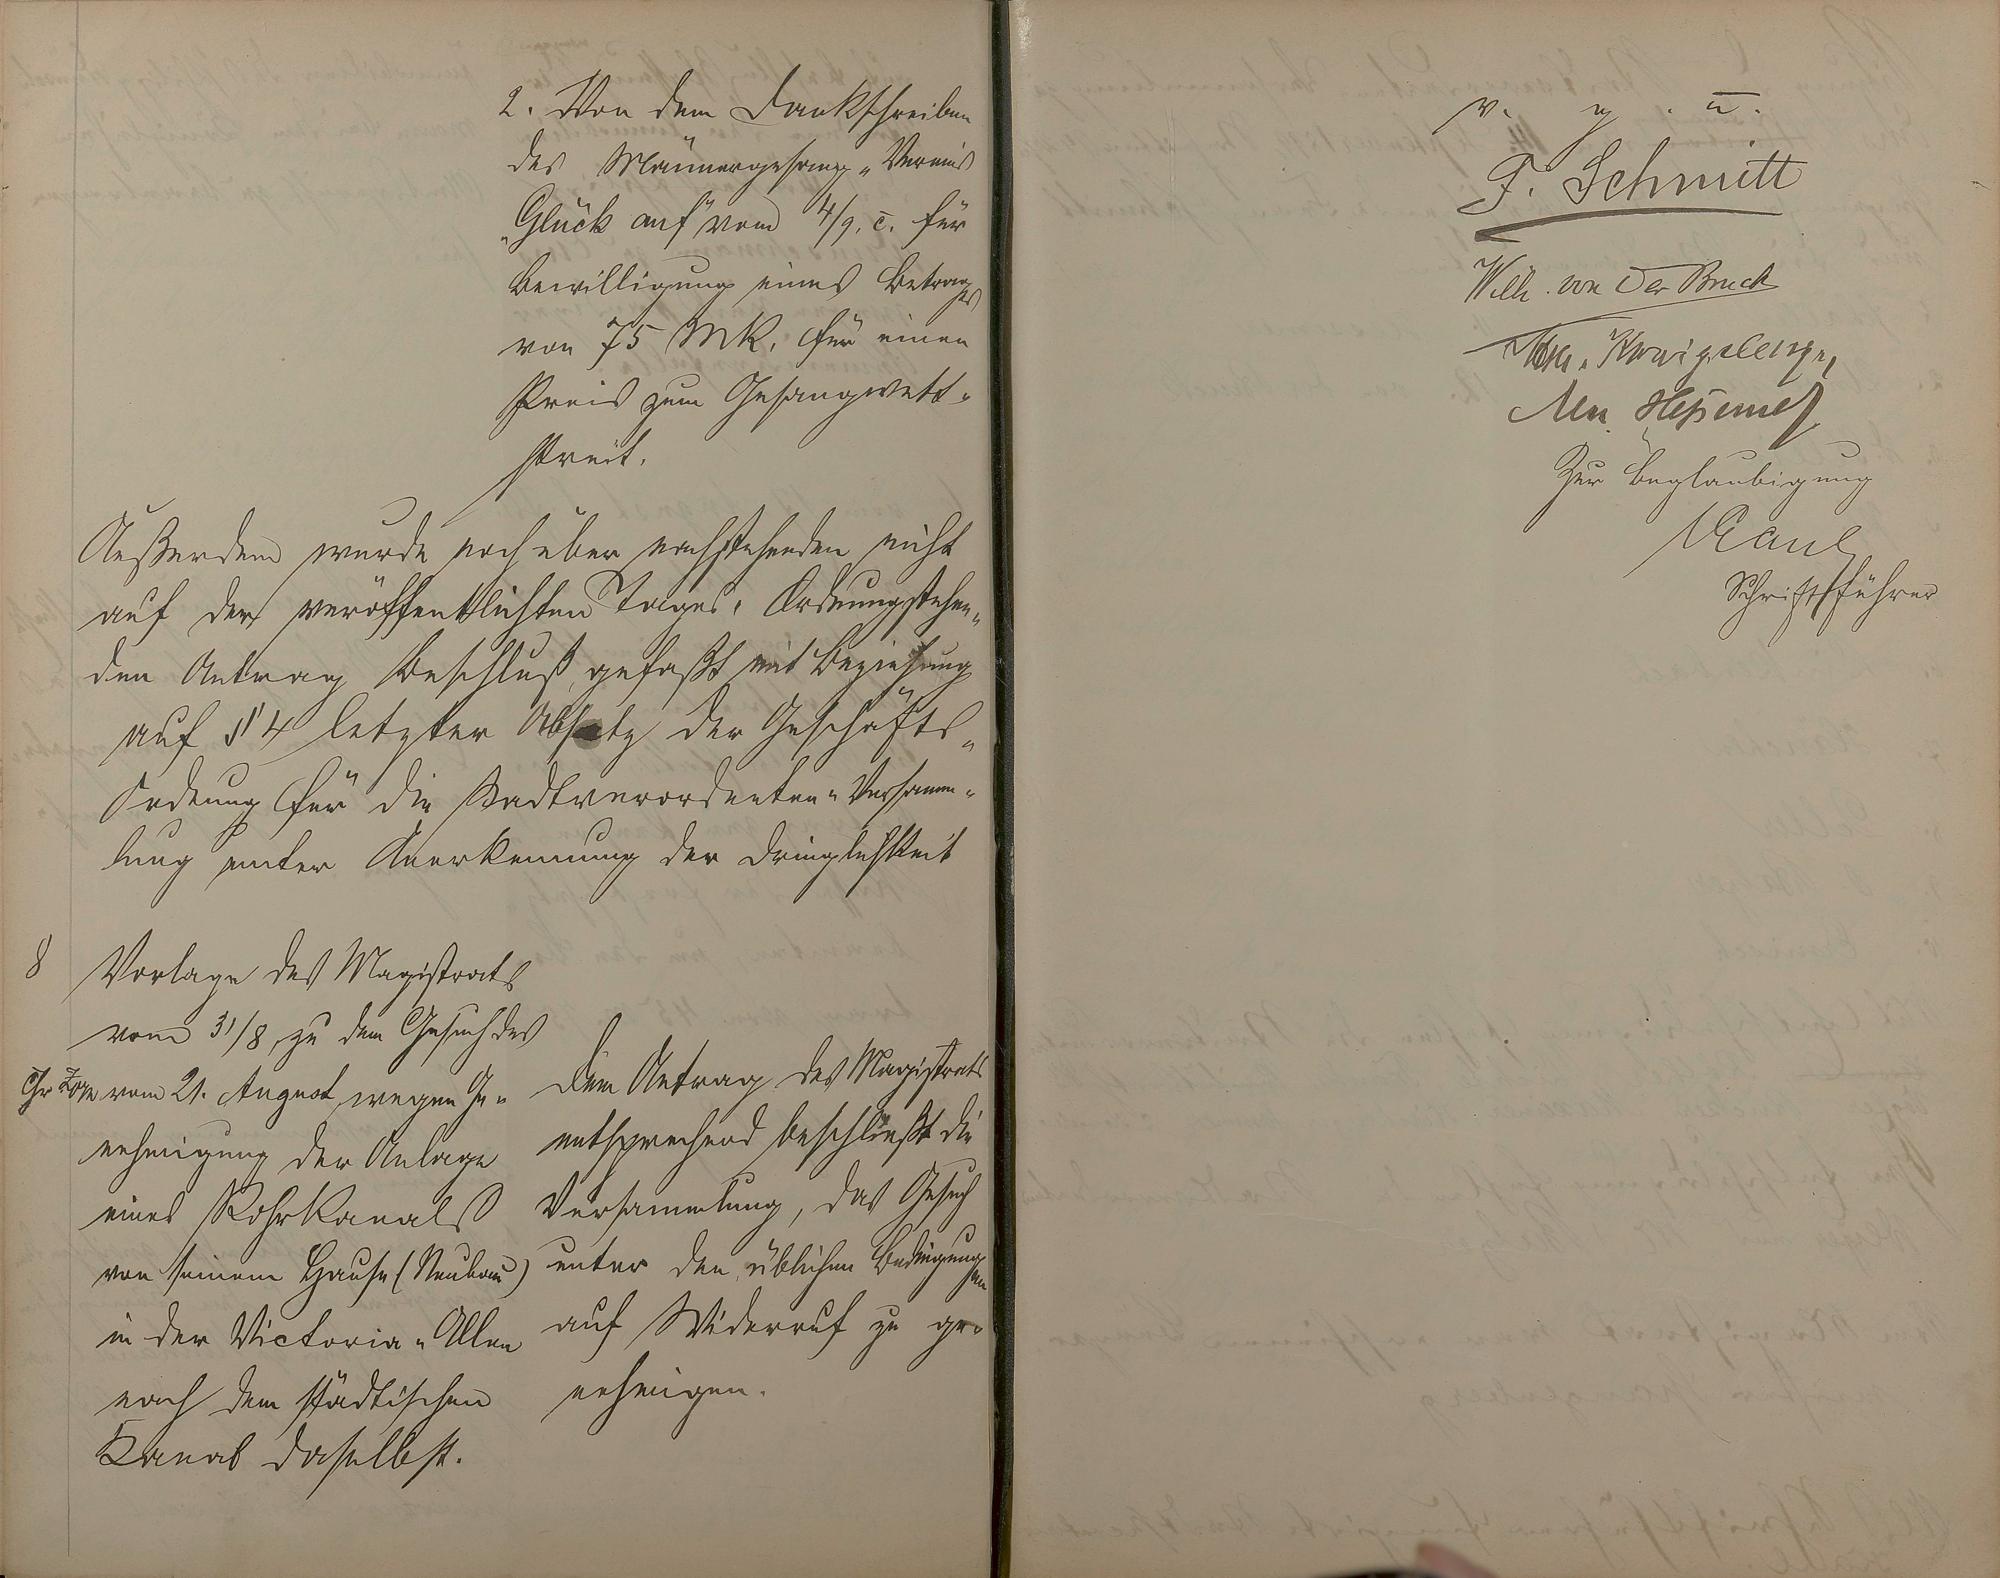 2. Von dem Dankschreiben
des Männergesang-Vereins
„Glück auf" vom 4/9. c. für
Bewilligung eines Betrages
von 75 Mk. für einen
Preis zum Gesangwett-
streit.
Außerdem wurde noch über nachstehenden nicht
auf der veröffentlichten Tages-Ordnung stehen-
den Antrag Beschluß gefaßt mit Beziehung
auf § 4 letzter Absatz der Geschäfts-
Ordnung für die Stadtverordneten-Versamm-
lung unter Anerkennung der Dringlichkeit
8 Vorlage des Magistrats
vom 31/8, zu dem Gesuch des
vom 21. August, wegen Ge-
nehmigung der Anlage
eines Rohrkanals
von seinem Hause (Neubau)
in der Victoria-Allee
nach dem städtischen
Kanal daselbst.
Dem Antrag des Magistrats
entsprechend beschließt die
Versammlung, das Gesuch
unter den üblichen Bedingungen
auf Widerruf zu ge-
nehmigen.
v. g. u.
F. Schmitt
Wilh. von der Bruck
Zur Beglaubigung
Schriftführer